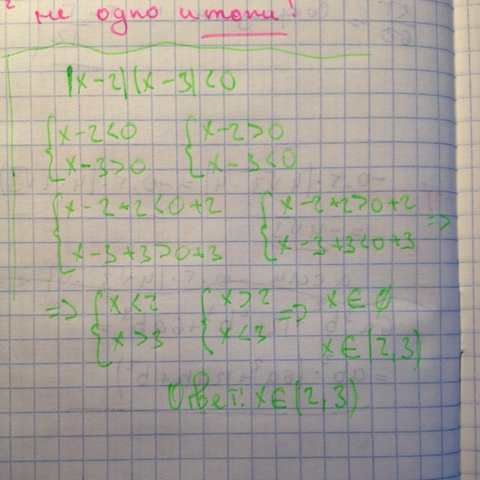 не одно и тоже!
(x-2)(x-3)<0
{x-2<0 {x-2>0
{x-3>0 {x-3<0
{x-2+2<0+2 {x-2+2>0+2
{x-3+3>0+3 {x-3+3<0+3 =>
=> {x<2 {x>2 => x∈∅
{x>3 {x<3 x∈(2,3)
Ответ: x∈(2,3)